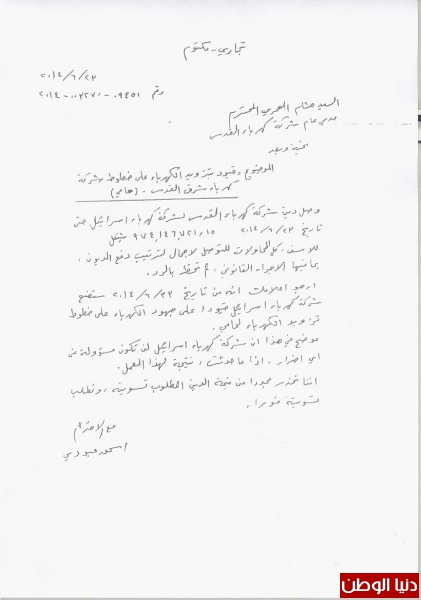 تجاري - مكتوم
٢٠١٤/٦/٢٣
رقم ٠٩٤٥١-٠٠٢٢٧٠-٢٠١٤
السيد هشام العمري المحترم
مدير عام شركة كهرباء القدس
تحية وبعد
الموضوع: قيود بتزويد الكهرباء على خطوط شركة
كهرباء شرق القدس - (هامي)
وصل دين شركة كهرباء القدس لشركة كهرباء اسرائيل حتى
تاريخ ٢٠١٤/٦/٢٣ ٩٧٤,١٤٦,٧٢١,١٥ شيكل
للاسف، كل المحاولات للتوصل لاجمال لترتيب دفع الديون،
بما فيها الاجراء القانوني، لم تحظ بالرد.
ارجو اعلامك انه من تاريخ ٢٠١٤/٦/٢٣ ستضع
شركة كهرباء اسرائيل قيودا على جهود الكهرباء على خطوط
تزويد الكهرباء لحامي.
موضح في هذا ان شركة كهرباء اسرائيل لن تكون مسؤولة عن
اي اضرار، اذا ما حدثت، نتيجة لهذا العمل.
اننا نحذر مجددا من الدين المطلوب تسويته، ونطلب
تسويته فورا.
مع الاحترام
دنيا الوطن